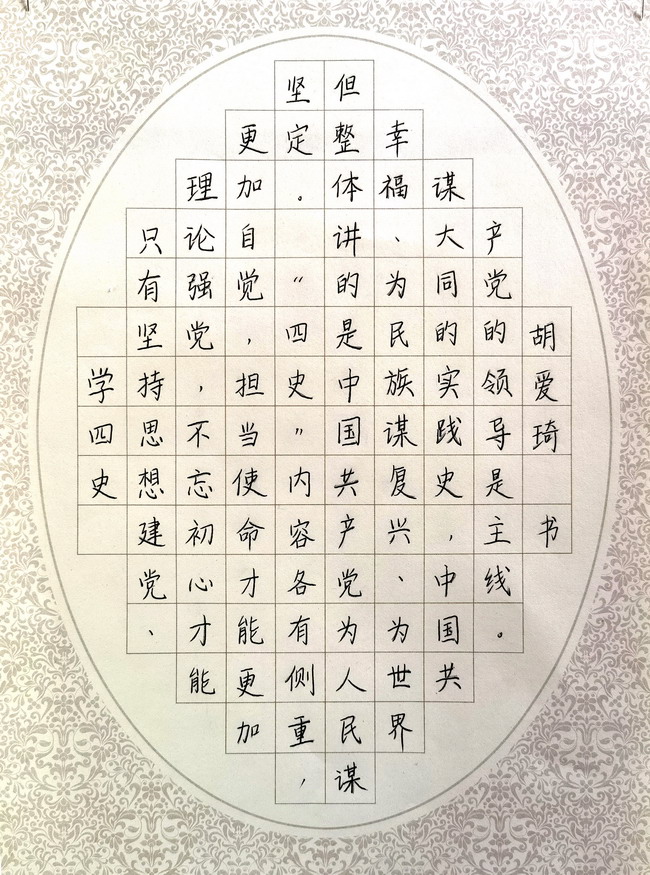 学四史
只有坚持思想建党、
理论强党，不忘初心才能
更加自觉，担当使命才能更加
坚定。“四史”内容各有侧重，
但整体讲的是中国共产党为人民谋
幸福、为民族谋复兴、为世界
谋大同的实践史，中国共
产党的领导是主线。
胡爱琦 书